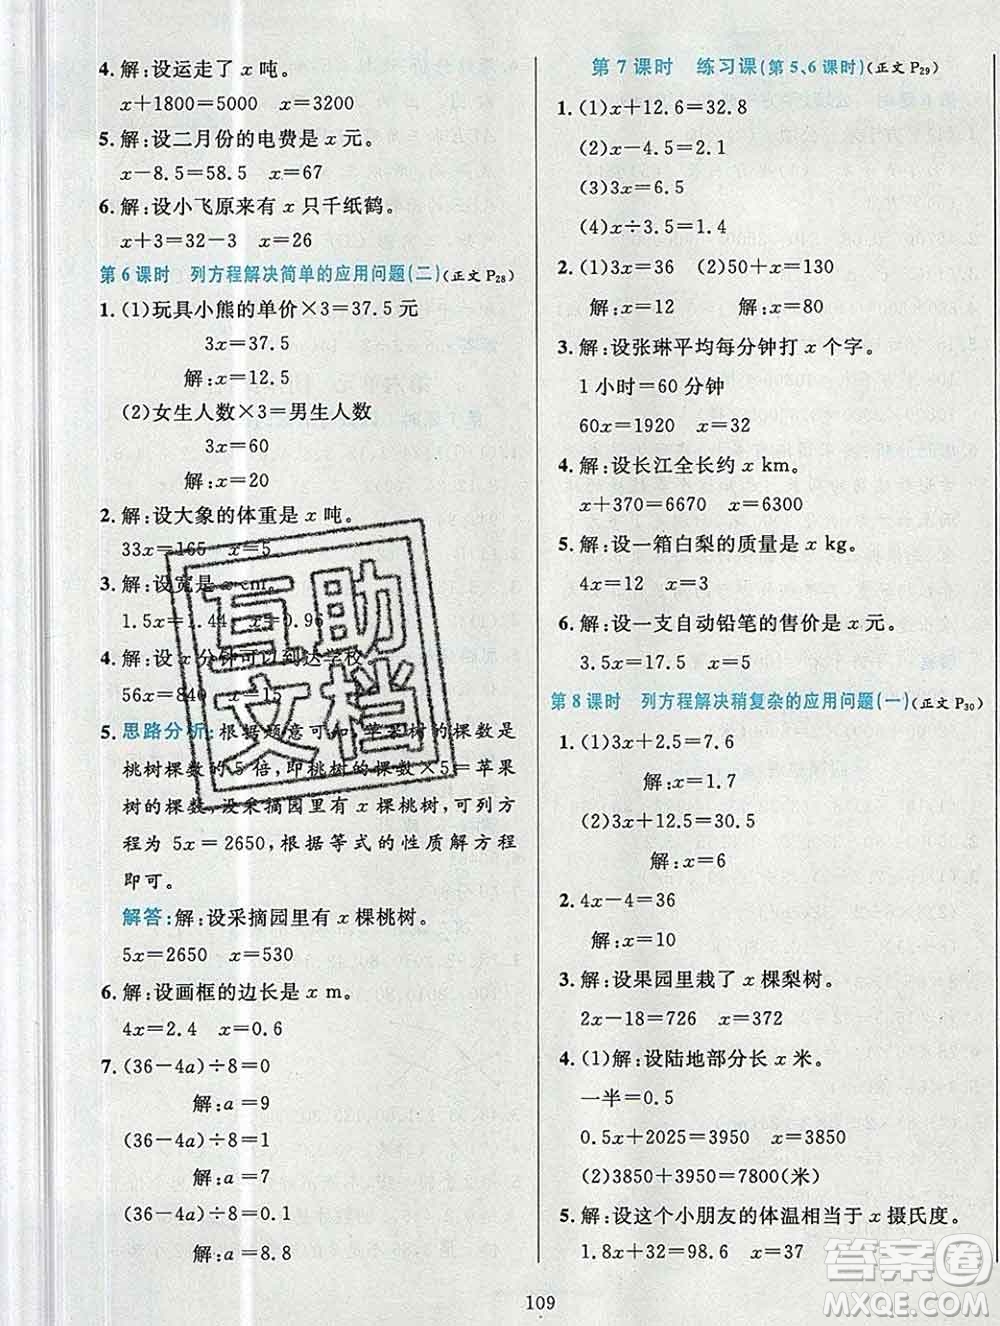 4. 解:设运走了 x 吨。
x+1800=5000  x=3200
5. 解:设二月份的电费是 x 元。
x-8.5=58.5  x=67
6. 解:设小飞原来有 x 只千纸鹤。
x+3=32-3  x=26
第 6 课时  列方程解决简单的应用问题(二)(正文 P28)
1. (1)玩具小熊的单价×3=37.5 元
3x=37.5
解:x=12.5
(2)女生人数×3=男生人数
3x=60
解:x=20
2. 解:设大象的体重是 x 吨。
33x=165  x=5
3. 解:设宽是 x cm。
1.5x=1.44  x=0.96
4. 解:设 x 分钟可以到达学校。
56x=840  x=15
5. 思路分析:根据题意可知,苹果树的棵数是
桃树棵数的 5 倍,即桃树的棵数×5=苹果
树的棵数,设采摘园里有 x 棵桃树,可列方
程为 5x=2650,根据等式的性质解方程
即可。
解答:解:设采摘园里有 x 棵桃树。
5x=2650  x=530
6. 解:设画框的边长是 x m。
4x=2.4  x=0.6
7. (36-4a)÷8=0
解:a=9
(36-4a)÷8=1
解:a=7
(36-4a)÷8=0.1
解:a=8.8
第 7 课时  练习课(第 5、6 课时)(正文 P29)
1. (1)x+12.6=32.8
(2)x-4.5=2.1
(3)3x=6.5
(4)x÷3.5=1.4
2. (1)3x=36  (2)x+50=130
解:x=12  解:x=80
3. 解:设张琳平均每分钟打 x 个字。
1 小时=60 分钟
60x=1920  x=32
4. 解:设长江全长约 x km。
x+370=6670  x=6300
5. 解:设一箱白梨的质量是 x kg。
4x=12  x=3
6. 解:设一支自动铅笔的售价是 x 元。
3.5x=17.5  x=5
第 8 课时  列方程解决稍复杂的应用问题(一)(正文 P30)
1. (1)3x+2.5=7.6
解:x=1.7
(2)3x+12.5=30.5
解:x=6
2. 4x-4=36
解:x=10
3. 解:设果园里栽了 x 棵梨树。
2x-18=726  x=372
4. (1)解:设陆地部分长 x 米。
一半=0.5
0.5x+2025=3950  x=3850
(2)3850+3950=7800(米)
5. 解:设这个小朋友的体温相当于 x 摄氏度。
1.8x+32=98.6  x=37
109
互助
文档
答案圈
MXQE.COM